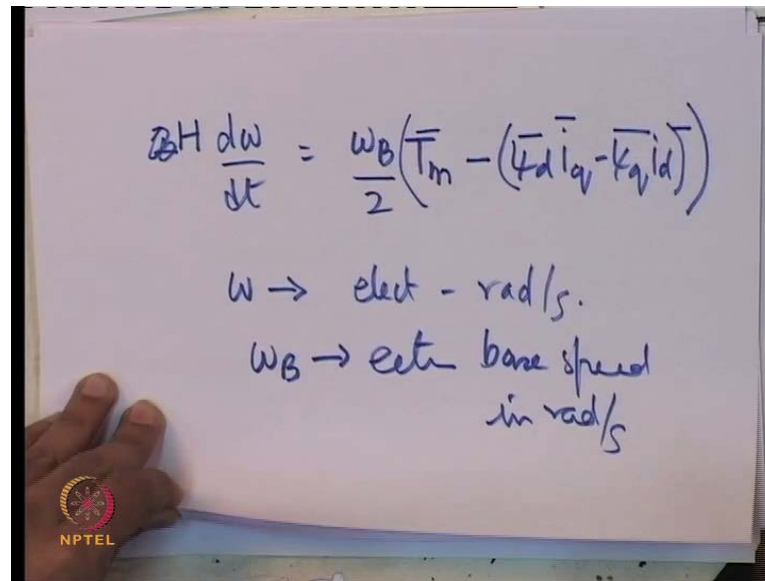 H dω/dt = ω_B/2 (T̄_m - (ψ̄_d ī_q - ψ̄_q ī_d))
ω → elect - rad/s.
ω_B → base speed
in rad/s
NPTEL